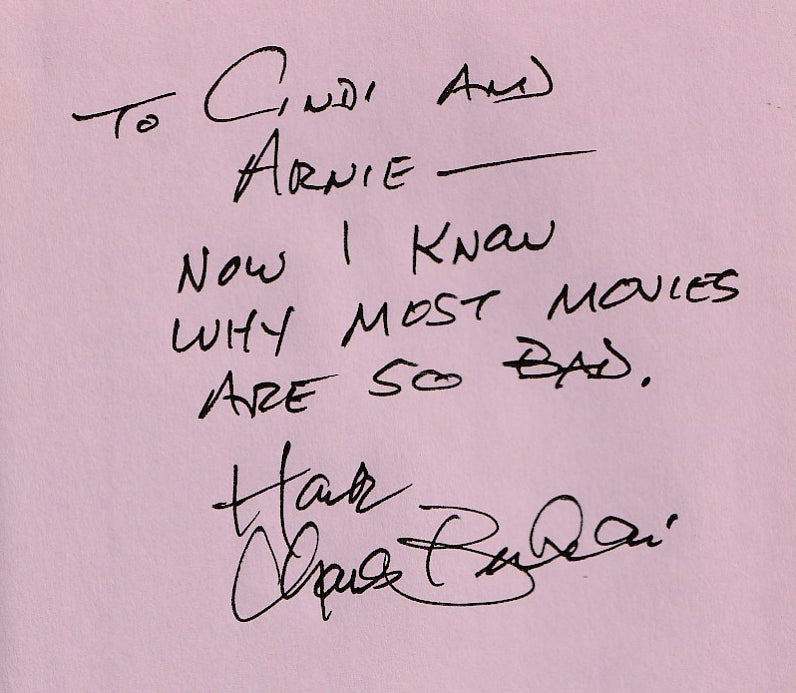 To Cindi AND
ARNIE —
NOW I KNOW
WHY MOST MOVIES
ARE SO BAD.
Hank
Charles Bukowski